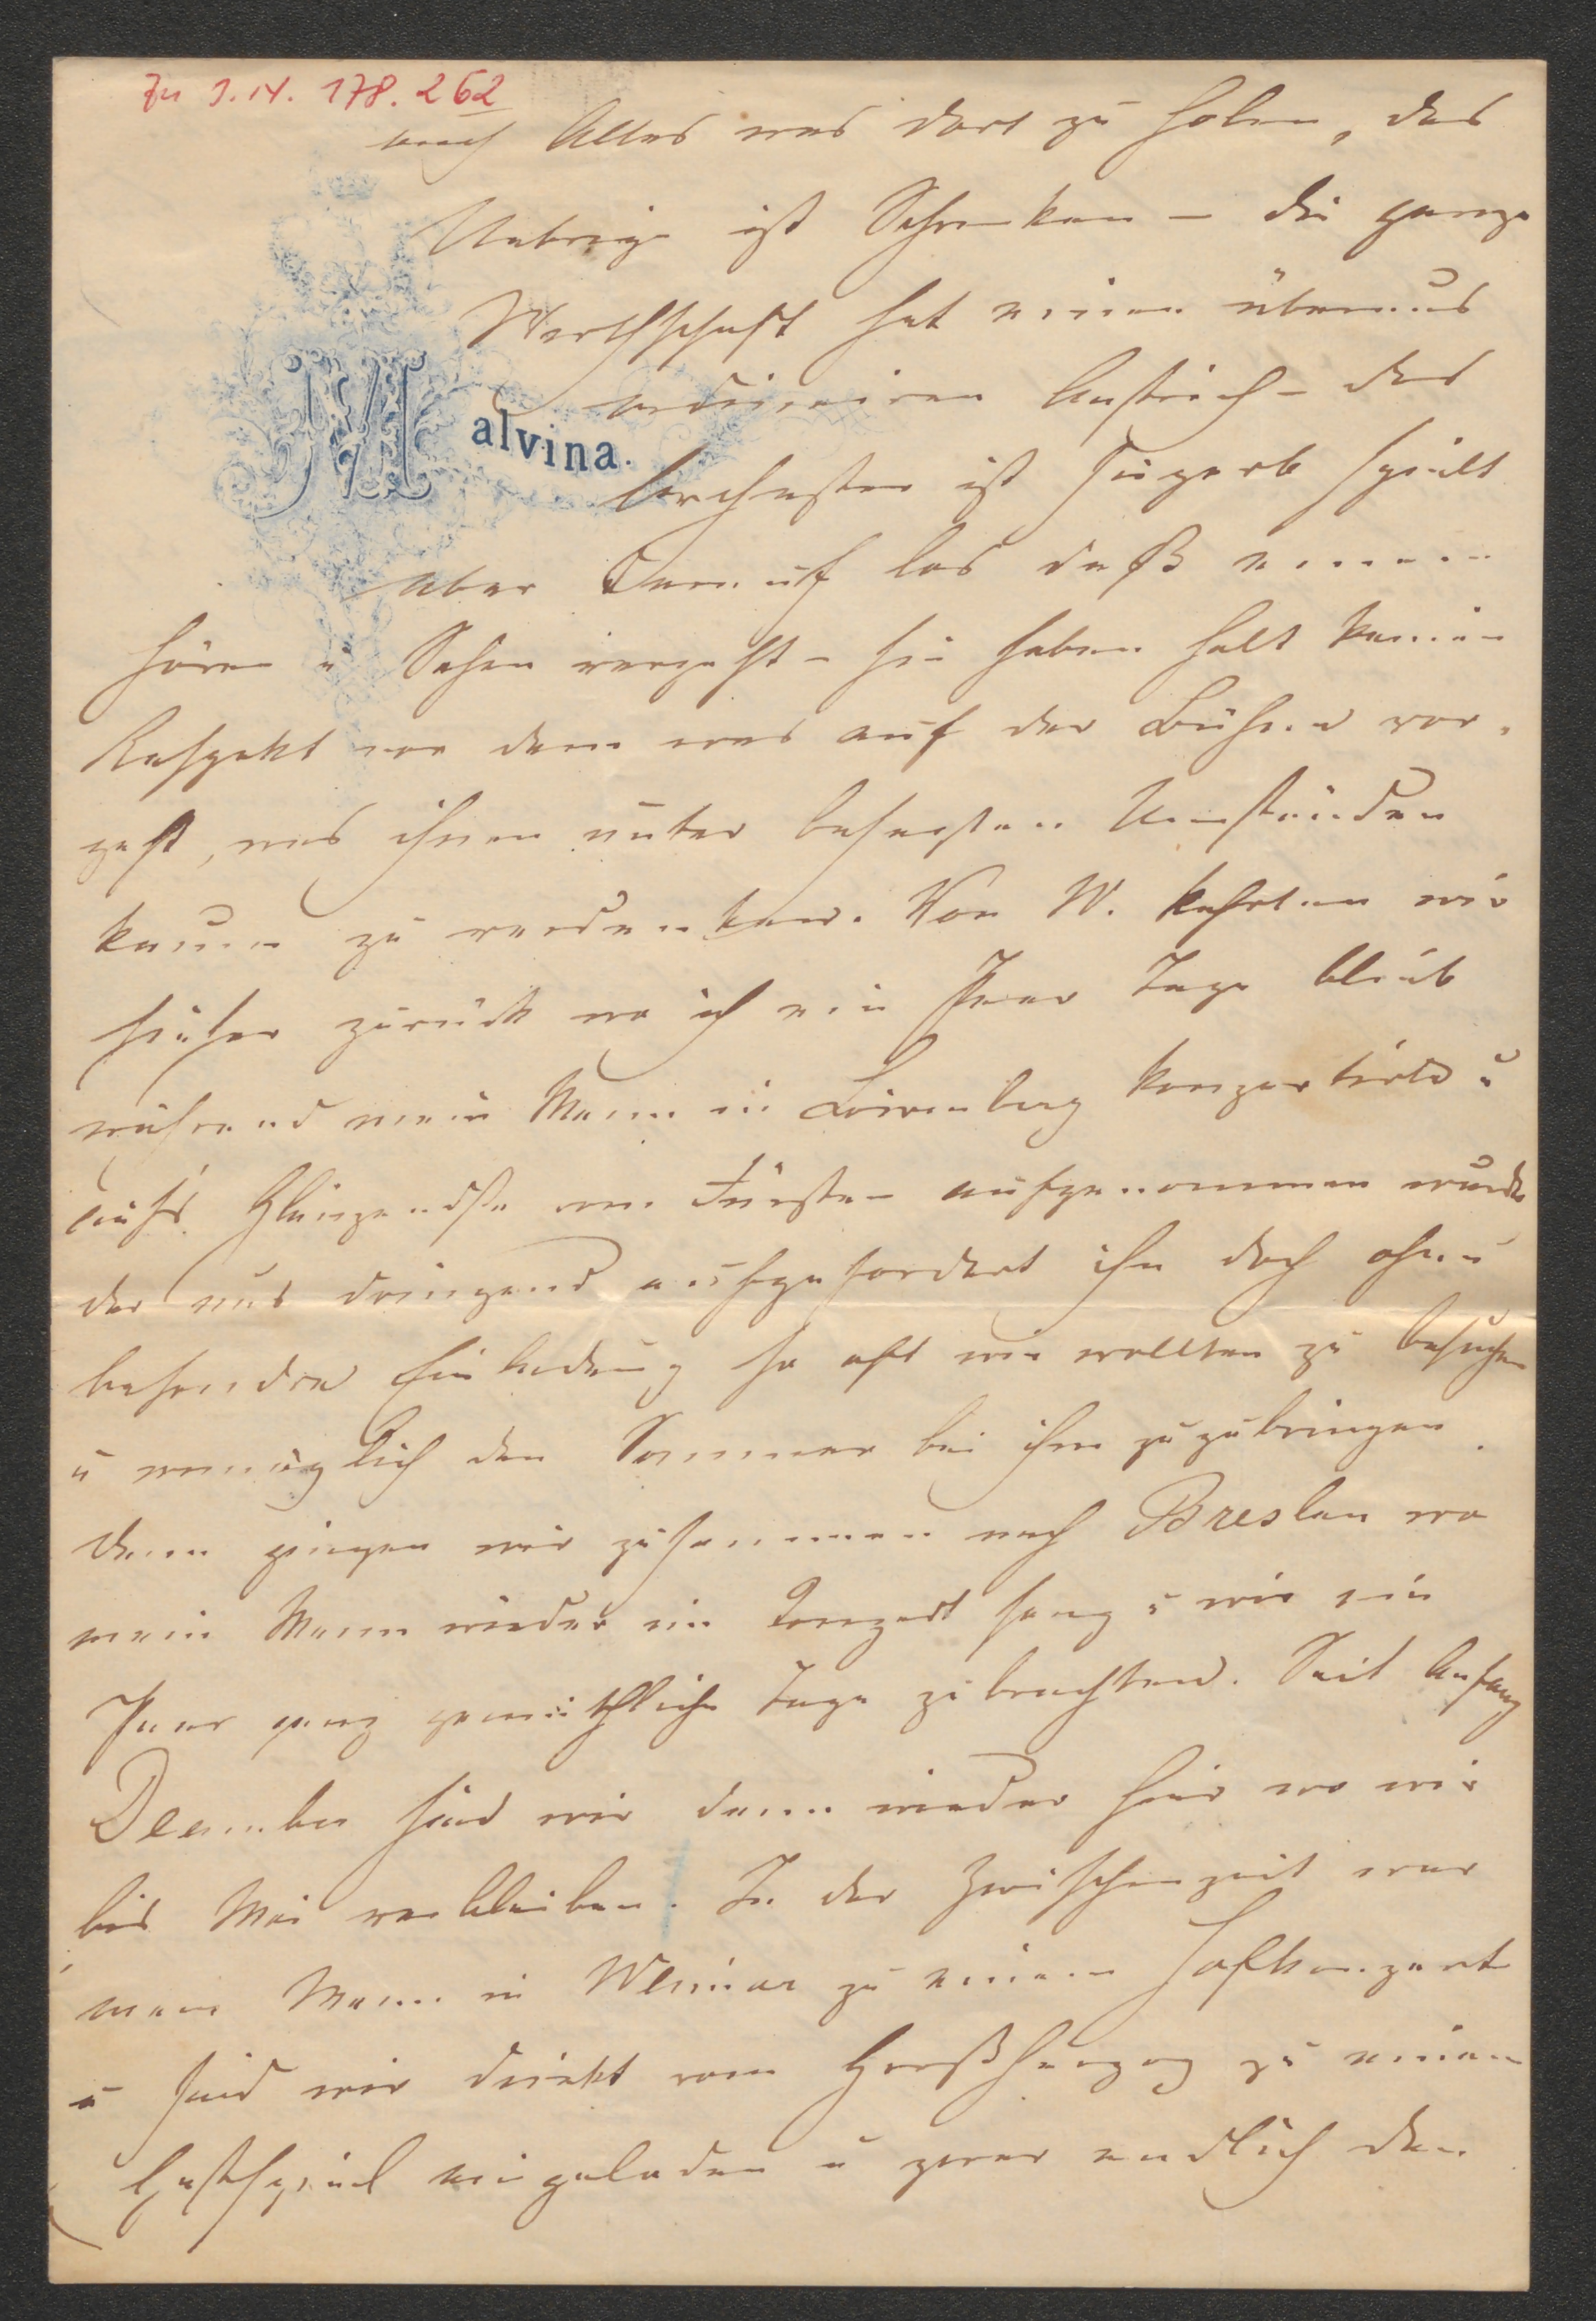 Zu I.N. 178.262
auch Alles was dort zu holen, das
Uebrige ist Schrecken – die ganze
Wirthschaft hat einen überaus
ordinairen Anstrich – das
Malvina.
Orchester ist superb spielt
aber darauf los daß einem
Hören u Sehen vergeht – sie haben halt keinen
Respekt vor dem was auf der Bühne vor-
geht, was ihnen unter besagten Umständen
kaum zu verdenken. Von W. kehrten wir
hieher zurück wo ich ein Paar Tage blieb
während mein Mann in Löwenberg konzertirte u
aufs Glänzendste vom Fürsten aufgenommen wurde
der uns dringend aufgefordert ihn doch ohne
besondre Einladung so oft wir wollten zu besuchen
u womöglich den Sommer bei ihm zuzubringen.
Dann gingen wir zusammen nach Breslau wo
mein Mann wieder im Conzert sang u wir ein
Paar ganz gemüthliche Tage zubrachten. Seit Anfang
December sind wir denn wieder hier wo wir
bis Mai verbleiben. In der Zwischenzeit war
mein Mann in Weimar zu einem Hofkonzert
u sind wir direkt vom Großherzog zu einem
Gastspiel eingeladen u zwar endlich den